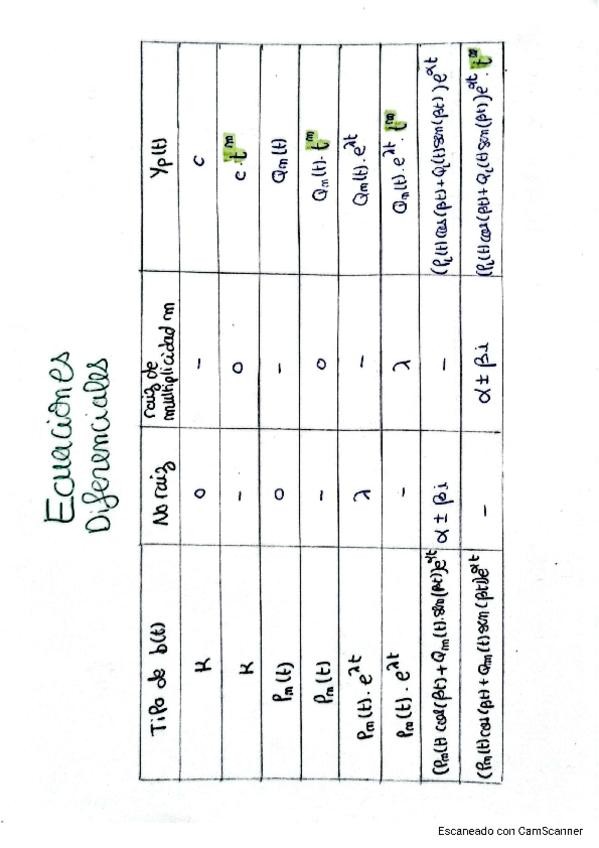 Ecuaciones
Diferenciales
Tipo de b(t) No raiz raiz de multiplicidad m Yp(t)
K 0 - c
K - 0 c·t^m
Pm(t) 0 - Qm(t)
Pm(t) - 0 Qm(t)·t^m
Pm(t)·e^λt λ - Qm(t)·e^λt
Pm(t)·e^λt - λ Qm(t)·e^λt·t^m
(Pm(t) cos(βt) + Qm(t)·sen(βt))e^αt α±βi - (Pl(t) cos(βt) + Ql(t) sen(βt))e^αt
(Pm(t) cos(βt) + Qm(t) sen(βt))e^αt - α±βi (Pl(t) cos(βt) + Ql(t) sen(βt))e^αt·t^m
Escaneado con CamScanner